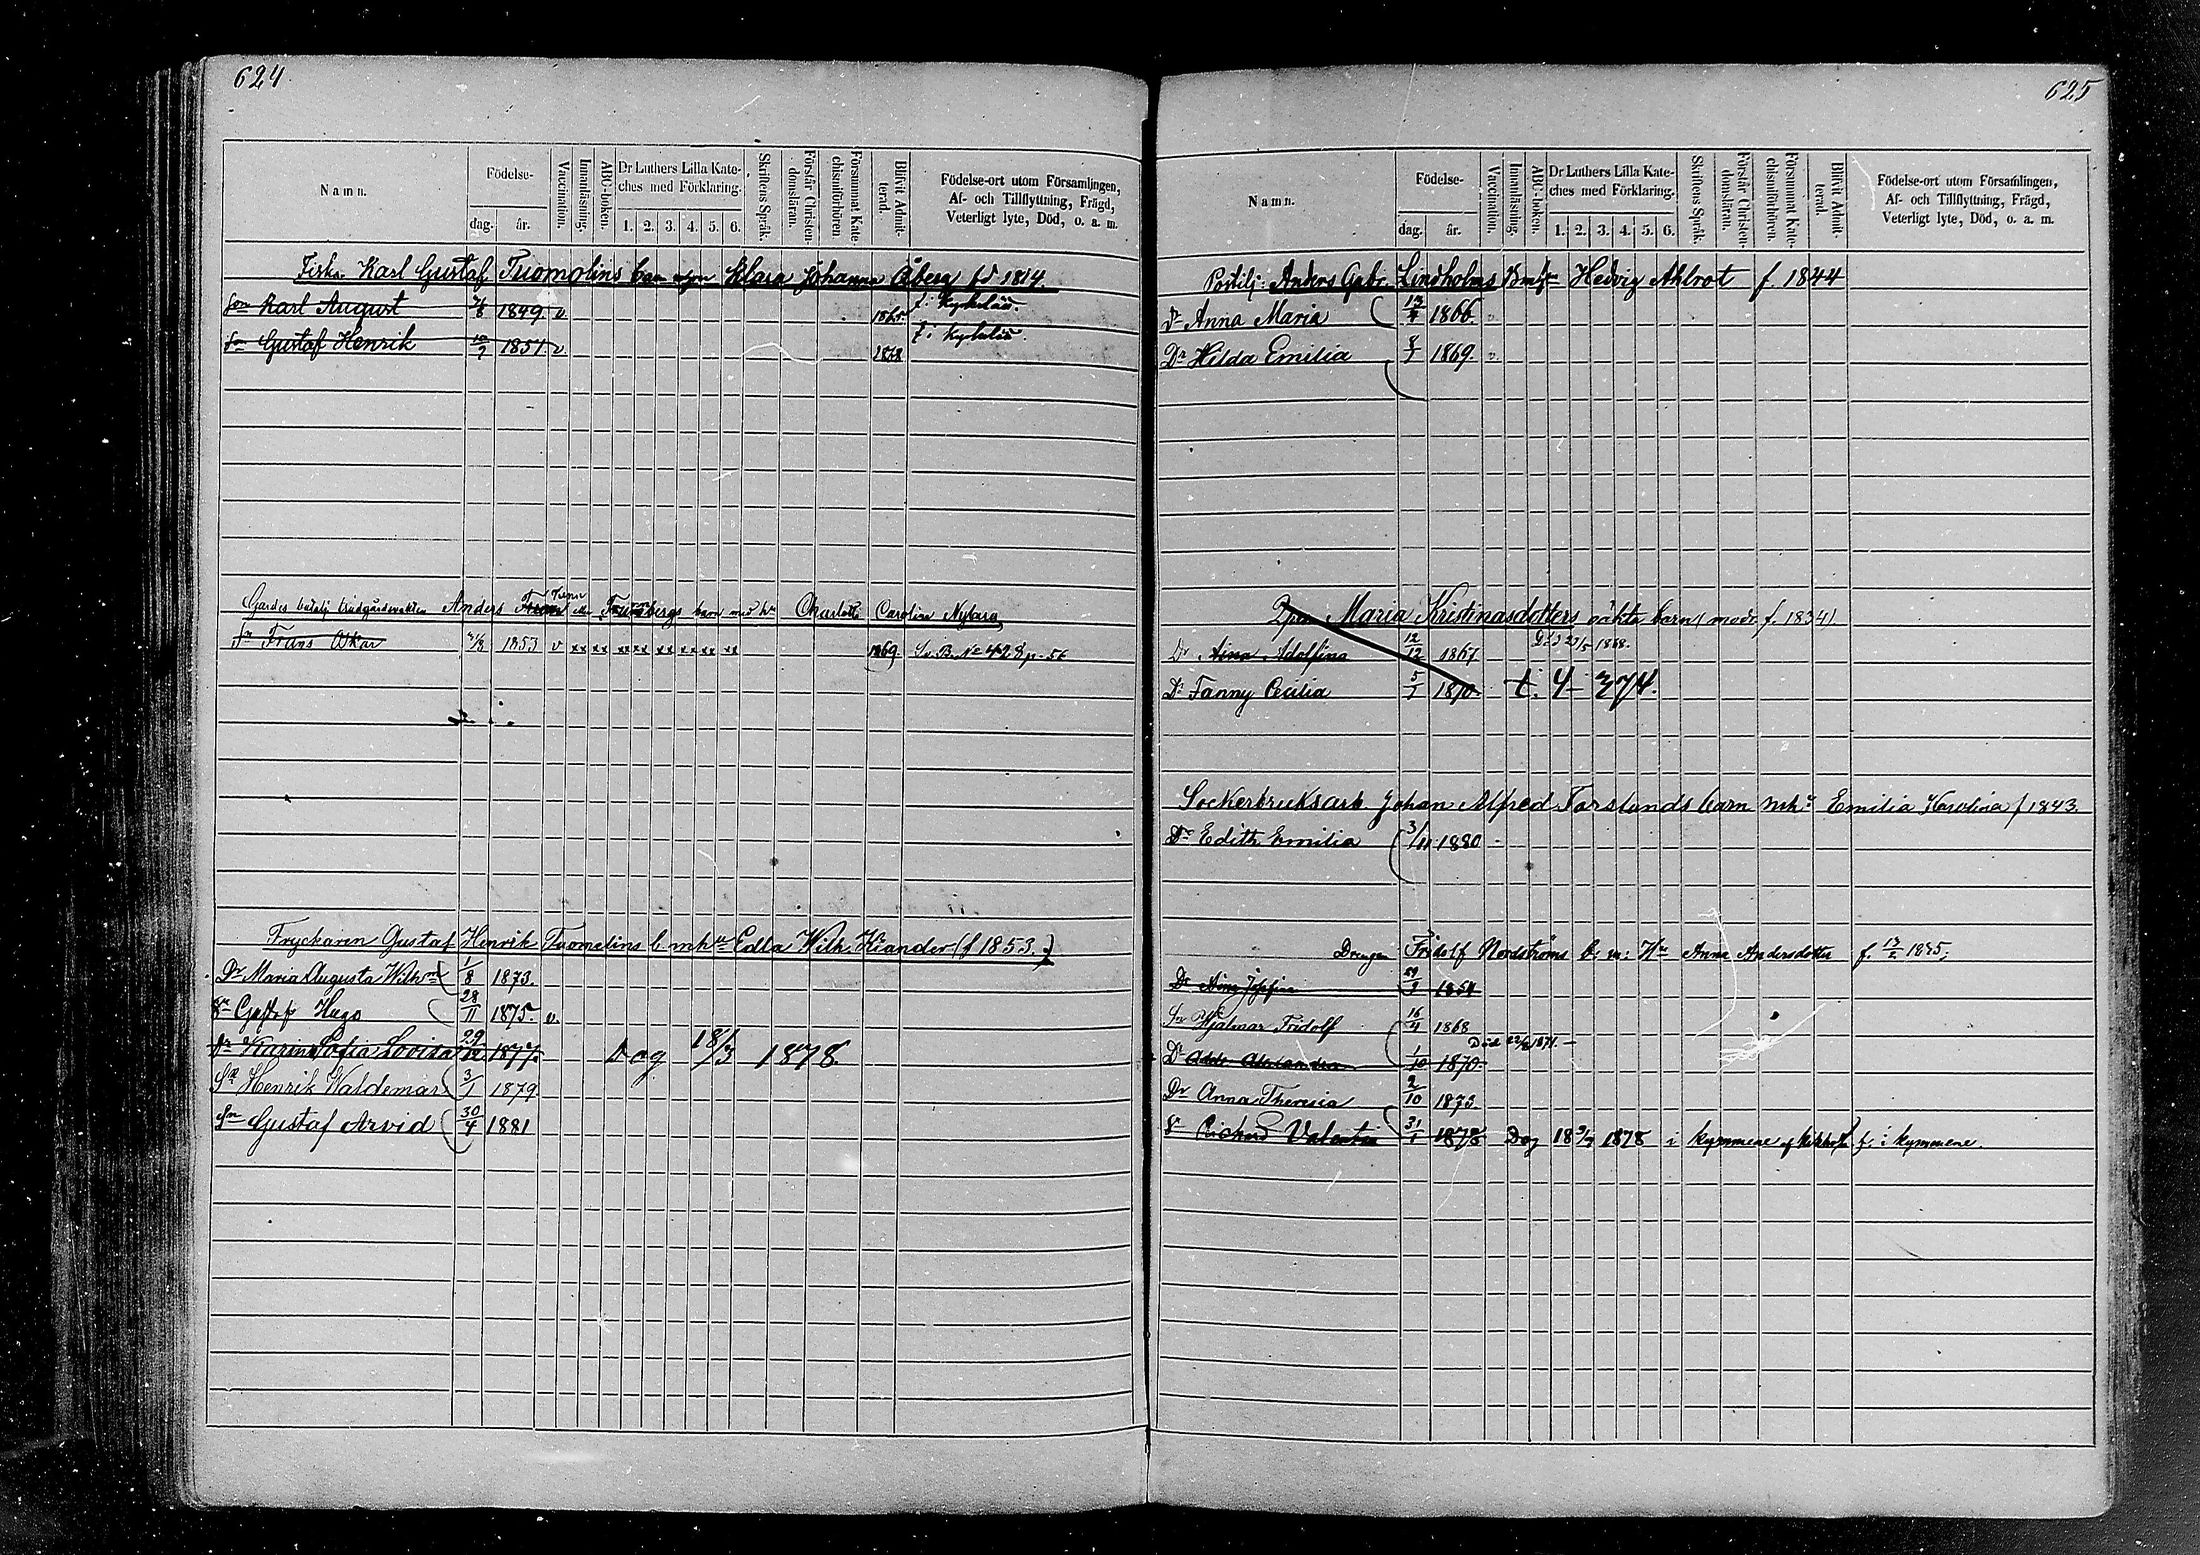 624
Namn.
Födelse-
dag.
år.
Vaccination.
Innanläsning.
ABC-boken.
Dr Luthers Lilla Kate-
ches med Förklaring.
1. 2. 3. 4. 5. 6.
Skriftens Språk.
Förstår Christen-
domsläran.
Försummat Kate-
chismiförhören
Blifvit Admit-
terad.
Födelse-ort utom Församlingen,
Af- och Tillflyttning, Frägd,
Veterligt lyte, Död, o. a. m.
Fisk. Karl Gustaf Tuomolins barn Klara Johanna Åberg f. 1814.
Sn Karl August 1849. v. 1865
Sn Gustaf Henrik 1851 v. 1868
Anders Trenbergs barn med hu Charlotta Carolina
Sn Frans Oskar 1853 v xx xx xx xx xx xx xx xx 1869 S. B. No 428 p. 56
Tryckaren Gustaf Henrik Tuomelins b. m. hu Edla Wilh. Kiander (f. 1853.)
Dr Maria Augusta Wilhma 1/8 1873.
Sn Gustaf Hugo 28/11 1875. v.
Dr Karin Sofia Lovisa 29/12 1877. Dog 18 1/3 1878
Sn Henrik Waldemar 3/1 1879.
Sn Gustaf Arvid 30/4 1881
625
Namn.
Födelse-
dag.
år.
Vaccination.
Innanläsning.
ABC-boken.
Dr Luthers Lilla Kate-
ches med Förklaring.
1. 2. 3. 4. 5. 6.
Skriftens Språk.
Förstår Christen-
domsläran.
Försummat Kate-
chismiförhören.
Blifvit Admit-
terad.
Födelse-ort utom Församlingen,
Af- och Tillflyttning, Frägd,
Veterligt lyte, Död, o. a. m.
Postilj. Anders Gabr. Lindholms Hedvig Ahlrot f. 1844
Dr Anna Maria 1866.
Dr Hilda Emilia 1869. v.
Maria Kristinasdotters oäkta barn (modr f. 1834).
Dr Aina Adolfina 12/12 1867 1868.
Dr Fanny Cecilia 5/1 1870 t. 4- 374.
Sockerbruksarb Johan Alfred Forslunds barn mhu Emilia Karolina f 1843
Dr Edith Emilia 3/11 1880
Drengen Fridolf Nordströms b. m. Hu Anna Andersdotter
Dr Aina
Sn Hjalmar Fridolf 16/4 1868
Död 1871.
Dr Alexandra 1/10 1870.
Dr Anna Theresia 2/10 1873.
Sn Richard Valentin 31/1 1878 Dog 1878 i Kymmene f. i Kymmene.